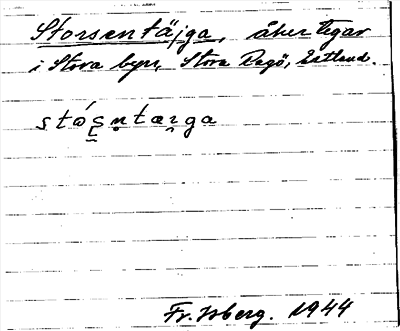 Storsentäjga, åker tegar
i Stora byn, Stora Ragö, Estland.
stǿʂn̥tær̥ga
Fr. Isberg. 1944